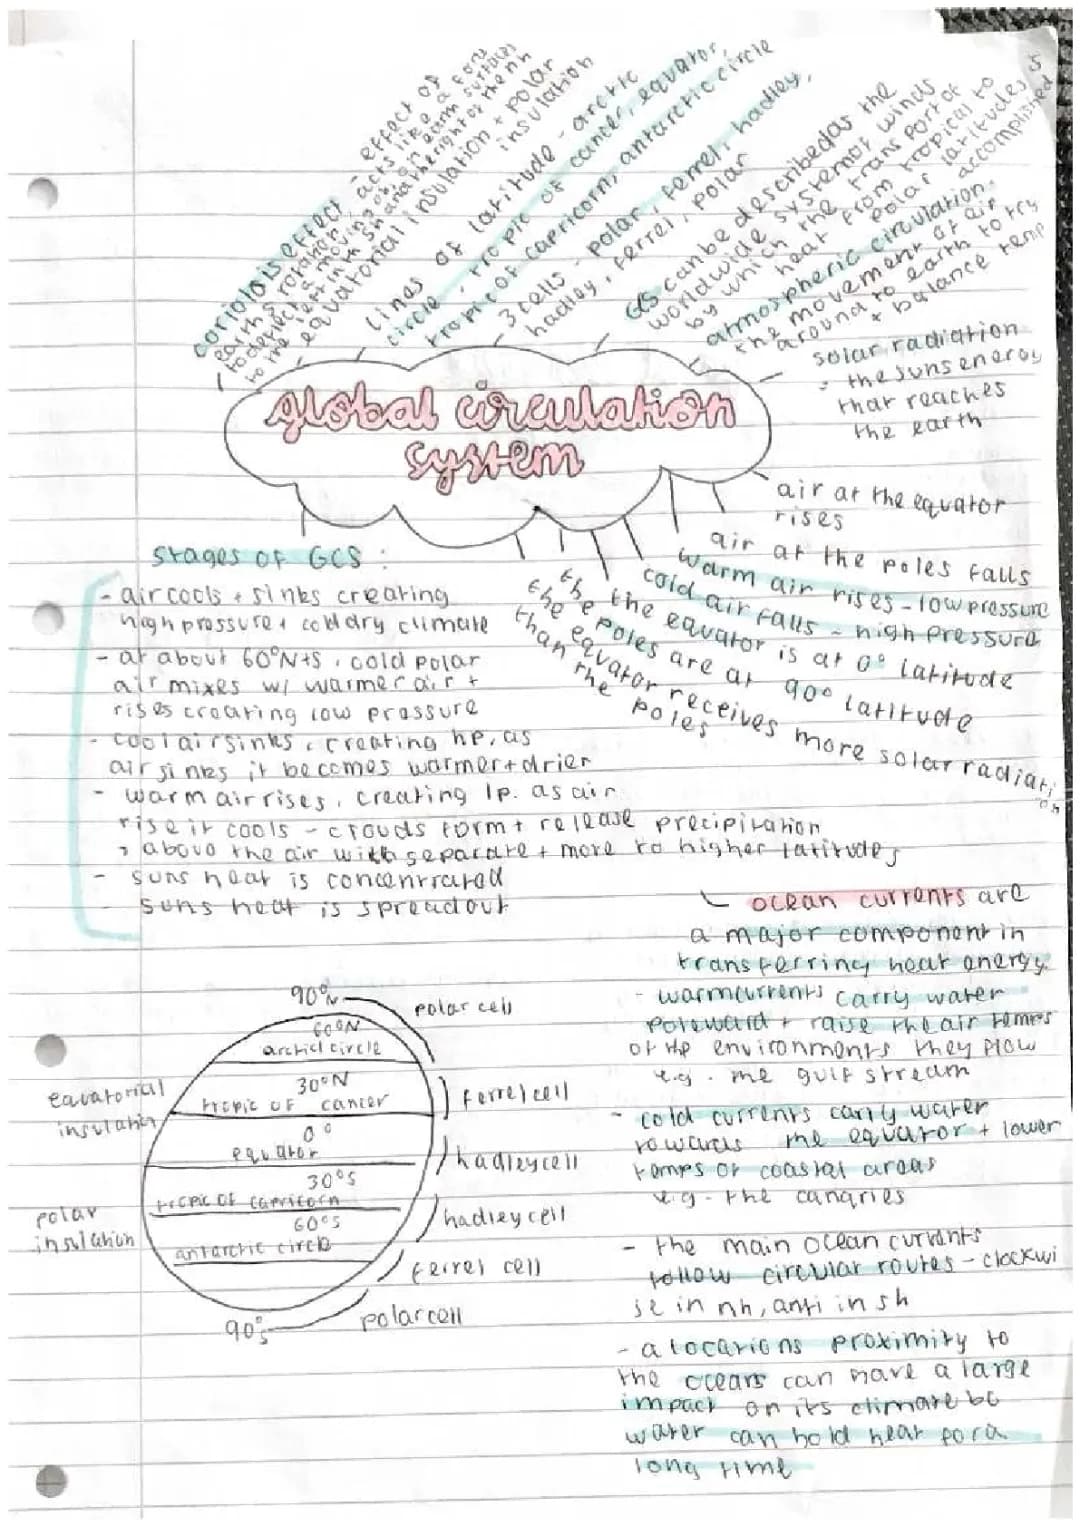 coriolois effect - effect of
earths rotation, acts like a force
to deflect a moving obj on earth surfaces
to the left in the sh and to the right of the nh
equatorial insulation + polar
insulation
lines of latitude - arctic
circle, tropic of cancer, equator,
tropic of capricorn, antarctic circle
3 cells - polar, ferrel, hadley,
hadley, ferrel, polar
GCS can be described as the
worldwide system of winds
by which the transport of
heat from tropical to
polar latitudes is
accomplished
atmospheric circulation -
the movement of air
around to earth to try
+ balance temp
solar radiation
- the suns energy
that reaches
the earth
global circulation
system
air at the equator
rises
air at the poles falls
warm air rises - low pressure
cold air falls - high pressure
the equator is at 0° latitude
the poles are at 90° latitude
the equator receives more solar radiation
than the poles
Stages of GCS :
- air cools + sinks creating
high pressure + cold dry climate
- at about 60°N+S, cold polar
air mixes w/ warmer air +
rises creating low pressure
- cool air sinks, creating hp, as
air sinks it becomes warmer + drier
- warm air rises, creating lp. as air
rise it cools - clouds form + release precipitation
, above the air with separate + more to higher latitudes
- suns heat is concentrated
- suns heat is spread out
ocean currents are
a major component in
transferring heat energy
- warm currents carry water
poleward + raise the air temps
of the environments they flow
e.g. the gulf stream
- cold currents carry water
towards the equator + lower
temps of coastal areas
e.g. the canaries
- the main ocean currents
follow circular routes - clockwi
se in nh, anti in sh
- a locations proximity to
the oceans can have a large
impact on its climate bc
water can hold heat for a
long time
90°N
polar cell
60°N
arctic circle
30°N
tropic of cancer
ferrel cell
equatorial
insulation
0°
equator
hadley cell
30°S
tropic of capricorn
hadley cell
polar
insulation
60°S
antarctic circle
ferrel cell
90°S
polar cell